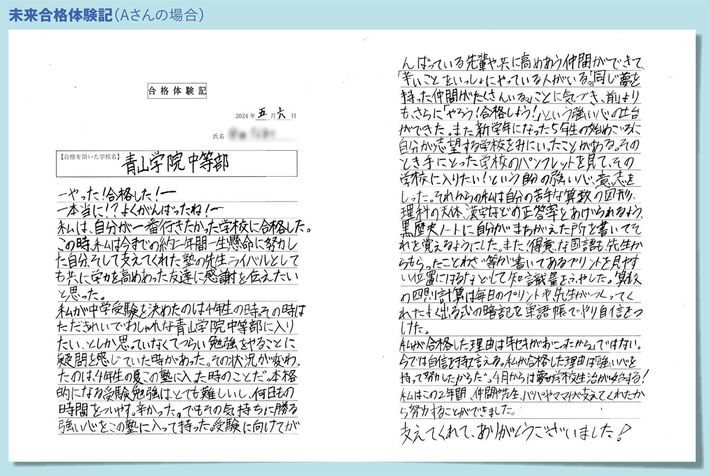 未来合格体験記(Aさんの場合)
合格体験記
2024年五月六日
氏名
【合格を頂いた学校名】 青山学院中等部
ーやった!合格した!ー
ー本当に!?よくがんばったね!ー
私は、自分が一番行きたかった学校に合格した。
この時、私は今までの約二年間一生懸命に努力し
た自分、そして支えてくれた塾の先生、ライバルとして
も共に学力を高めあった友達に感謝を伝えたい
と思った。
私が中学受験を決めたのは4年生の時。その時は
ただきれいでおしゃれな青山学院中等部に入り
たい、としか思っていなくてつらい勉強をやることに
疑問を感じていた時があった。その状況が変わっ
たのは、4年生の夏この塾に入った時のことだ。本格
的になる受験勉強は、とても難しいし、何日もの
時間をついやす。辛かった。でもその気持ちに勝る
強い心をこの塾に入って持った。受験に向けてが
んばっている先輩や共に高めあう仲間ができて、
「辛いことをいっしょにやっている人がいる。」「同じ夢を
持った仲間がたくさんいる。」ことに気づき、前より
も、さらに「やろう!合格しよう!」という強い心の土台
ができた。また新学年になった5年生の始めごろに
自分が志望する学校を手にいったことがある。その
とき手にとった学校のパンフレットを見て、その
学校に入りたい!という自分の強い心、意志を
した。それからの私は自分の苦手な算数の図形、
理科の天体、滑車などの正答率をあげられるよう、
黒歴史ノートに自分がまちがえた所を書いてそ
れを覚えるようにした。また得意な国語も先生か
らもらったことわざ等が書いてあるプリントを見やす
い位置にはるなどして知識量をふやした。算数
の四則計算は毎日のプリントや先生がつくってく
れたよく出る式の暗記を単語帳でやり自信をつ
けた。
私が合格した理由は「年
今では自信を持って言える。私が合格した理由は「強い心を
持って努力したから」だ。4月からは夢の学校生活が始まる!
私はこの2年間、仲間や先生、パパやママが支えてくれたから
努力することができました。
支えてくれて、ありがとうございました!